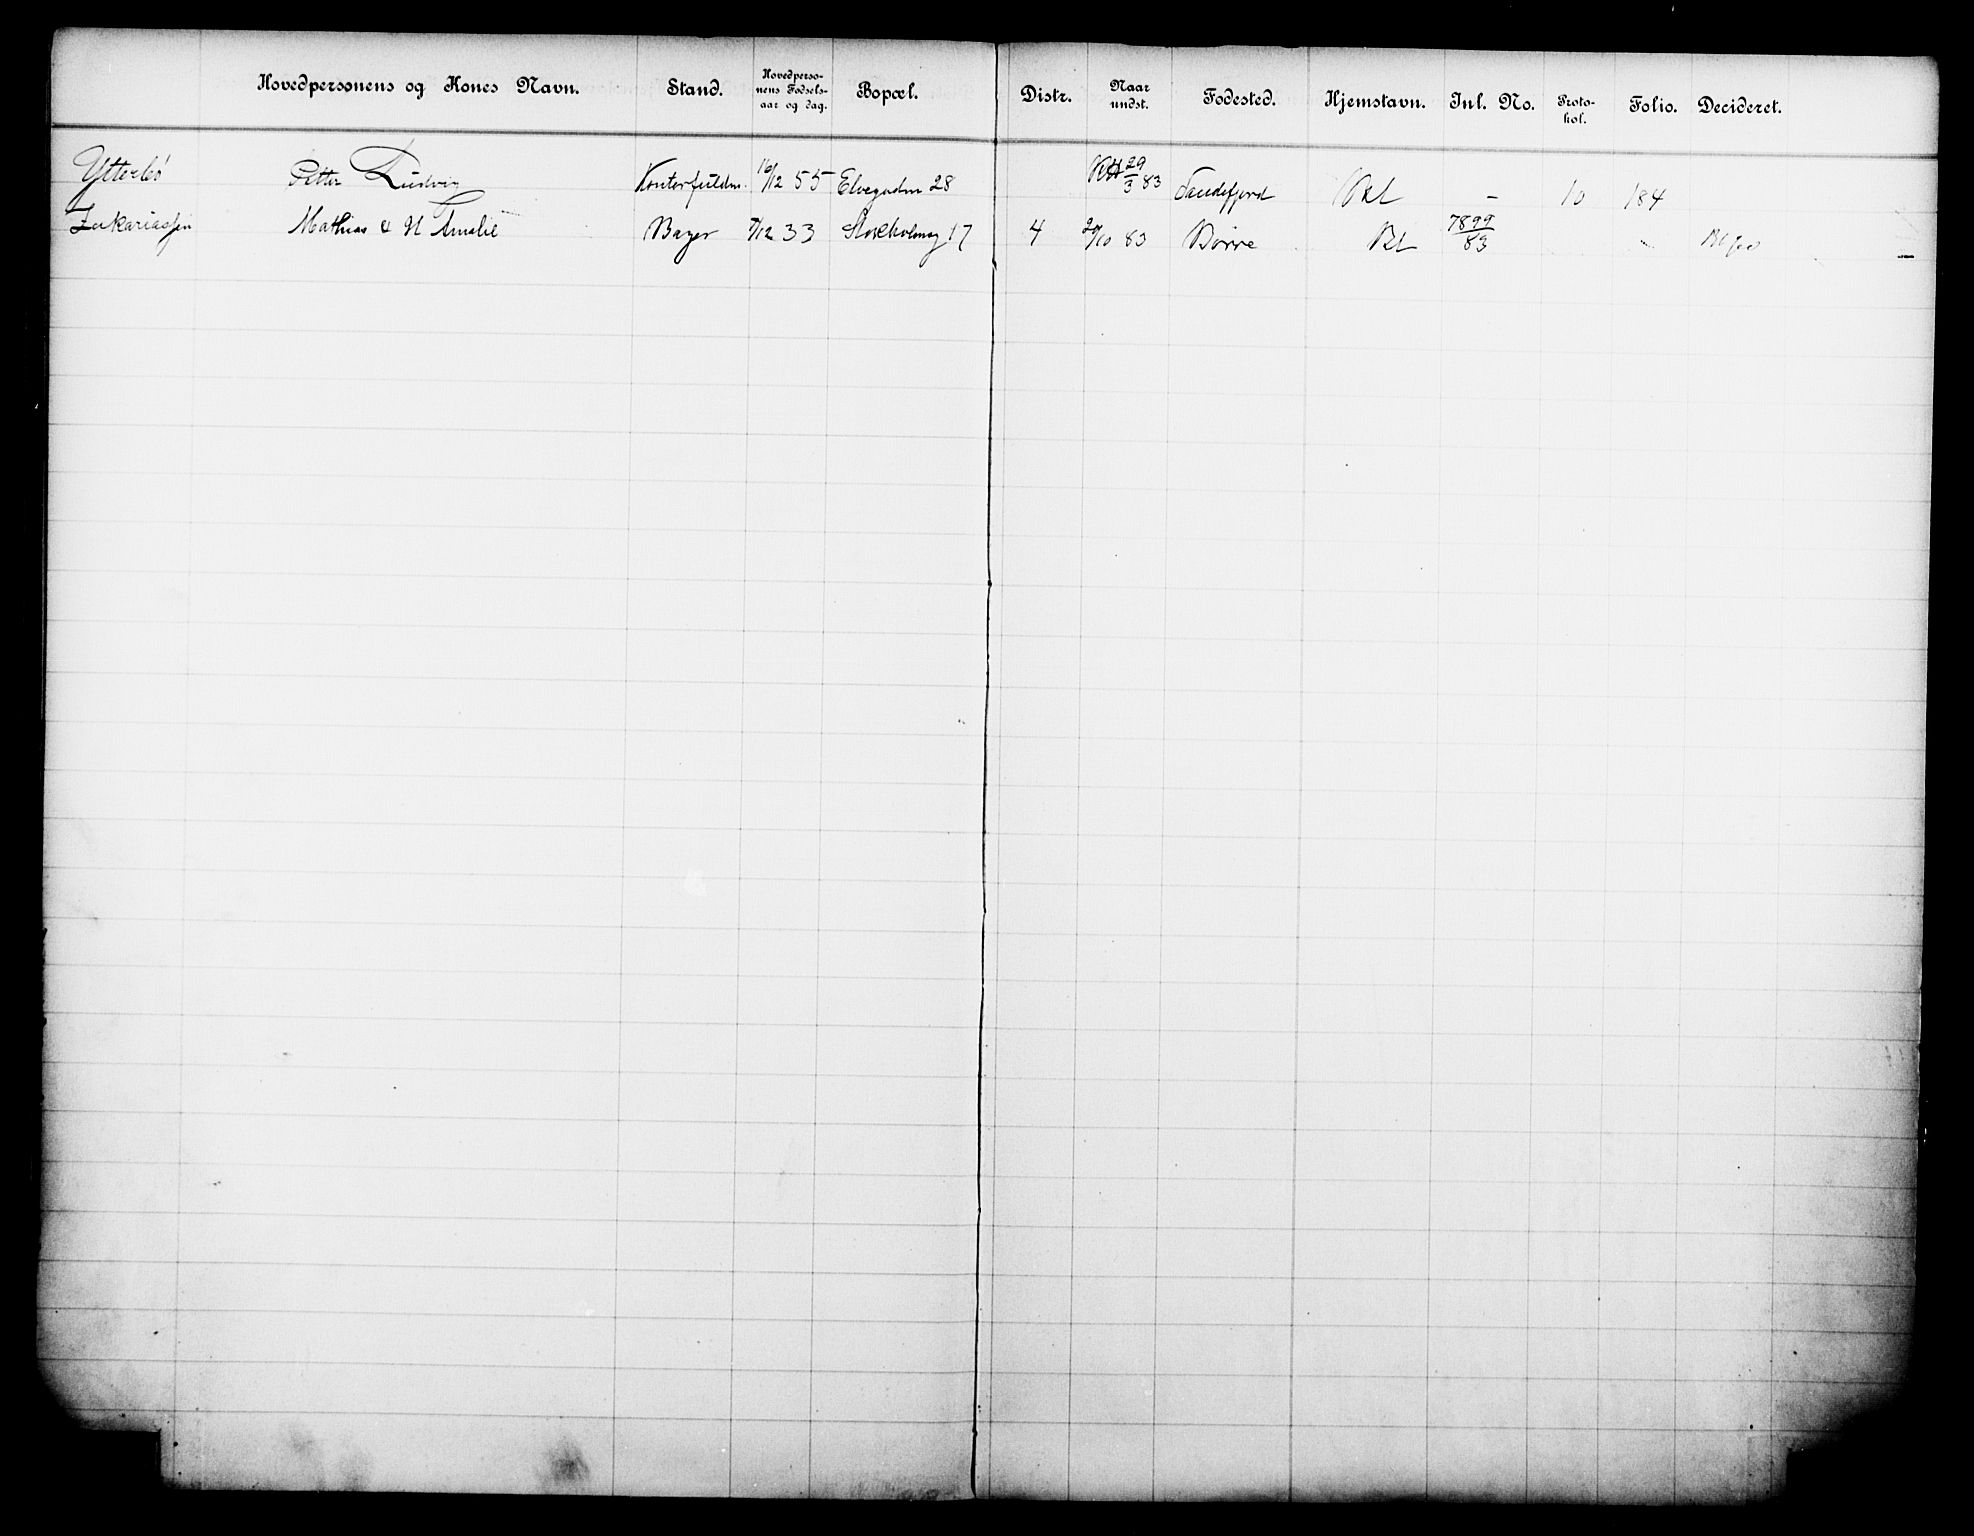 Hovedpersonens og Kones Navn. Stand. Hovedpersonens Fødselsaar og dag. Bopæl. Distr. Naar undst. Fødested. Hjemstavn. Inl. No. Protokol. Folio. Decideret.
Ytterbö Petter Ludvig Kontorfuldm. 16/12 55 Elvegaden 28 29/3 83 Sandefjord – 10 184
Zakariassen Mathias & H Amalie Bager 7/12 33 Stokholmsg 17 4 /10 83 Borre 7899/83